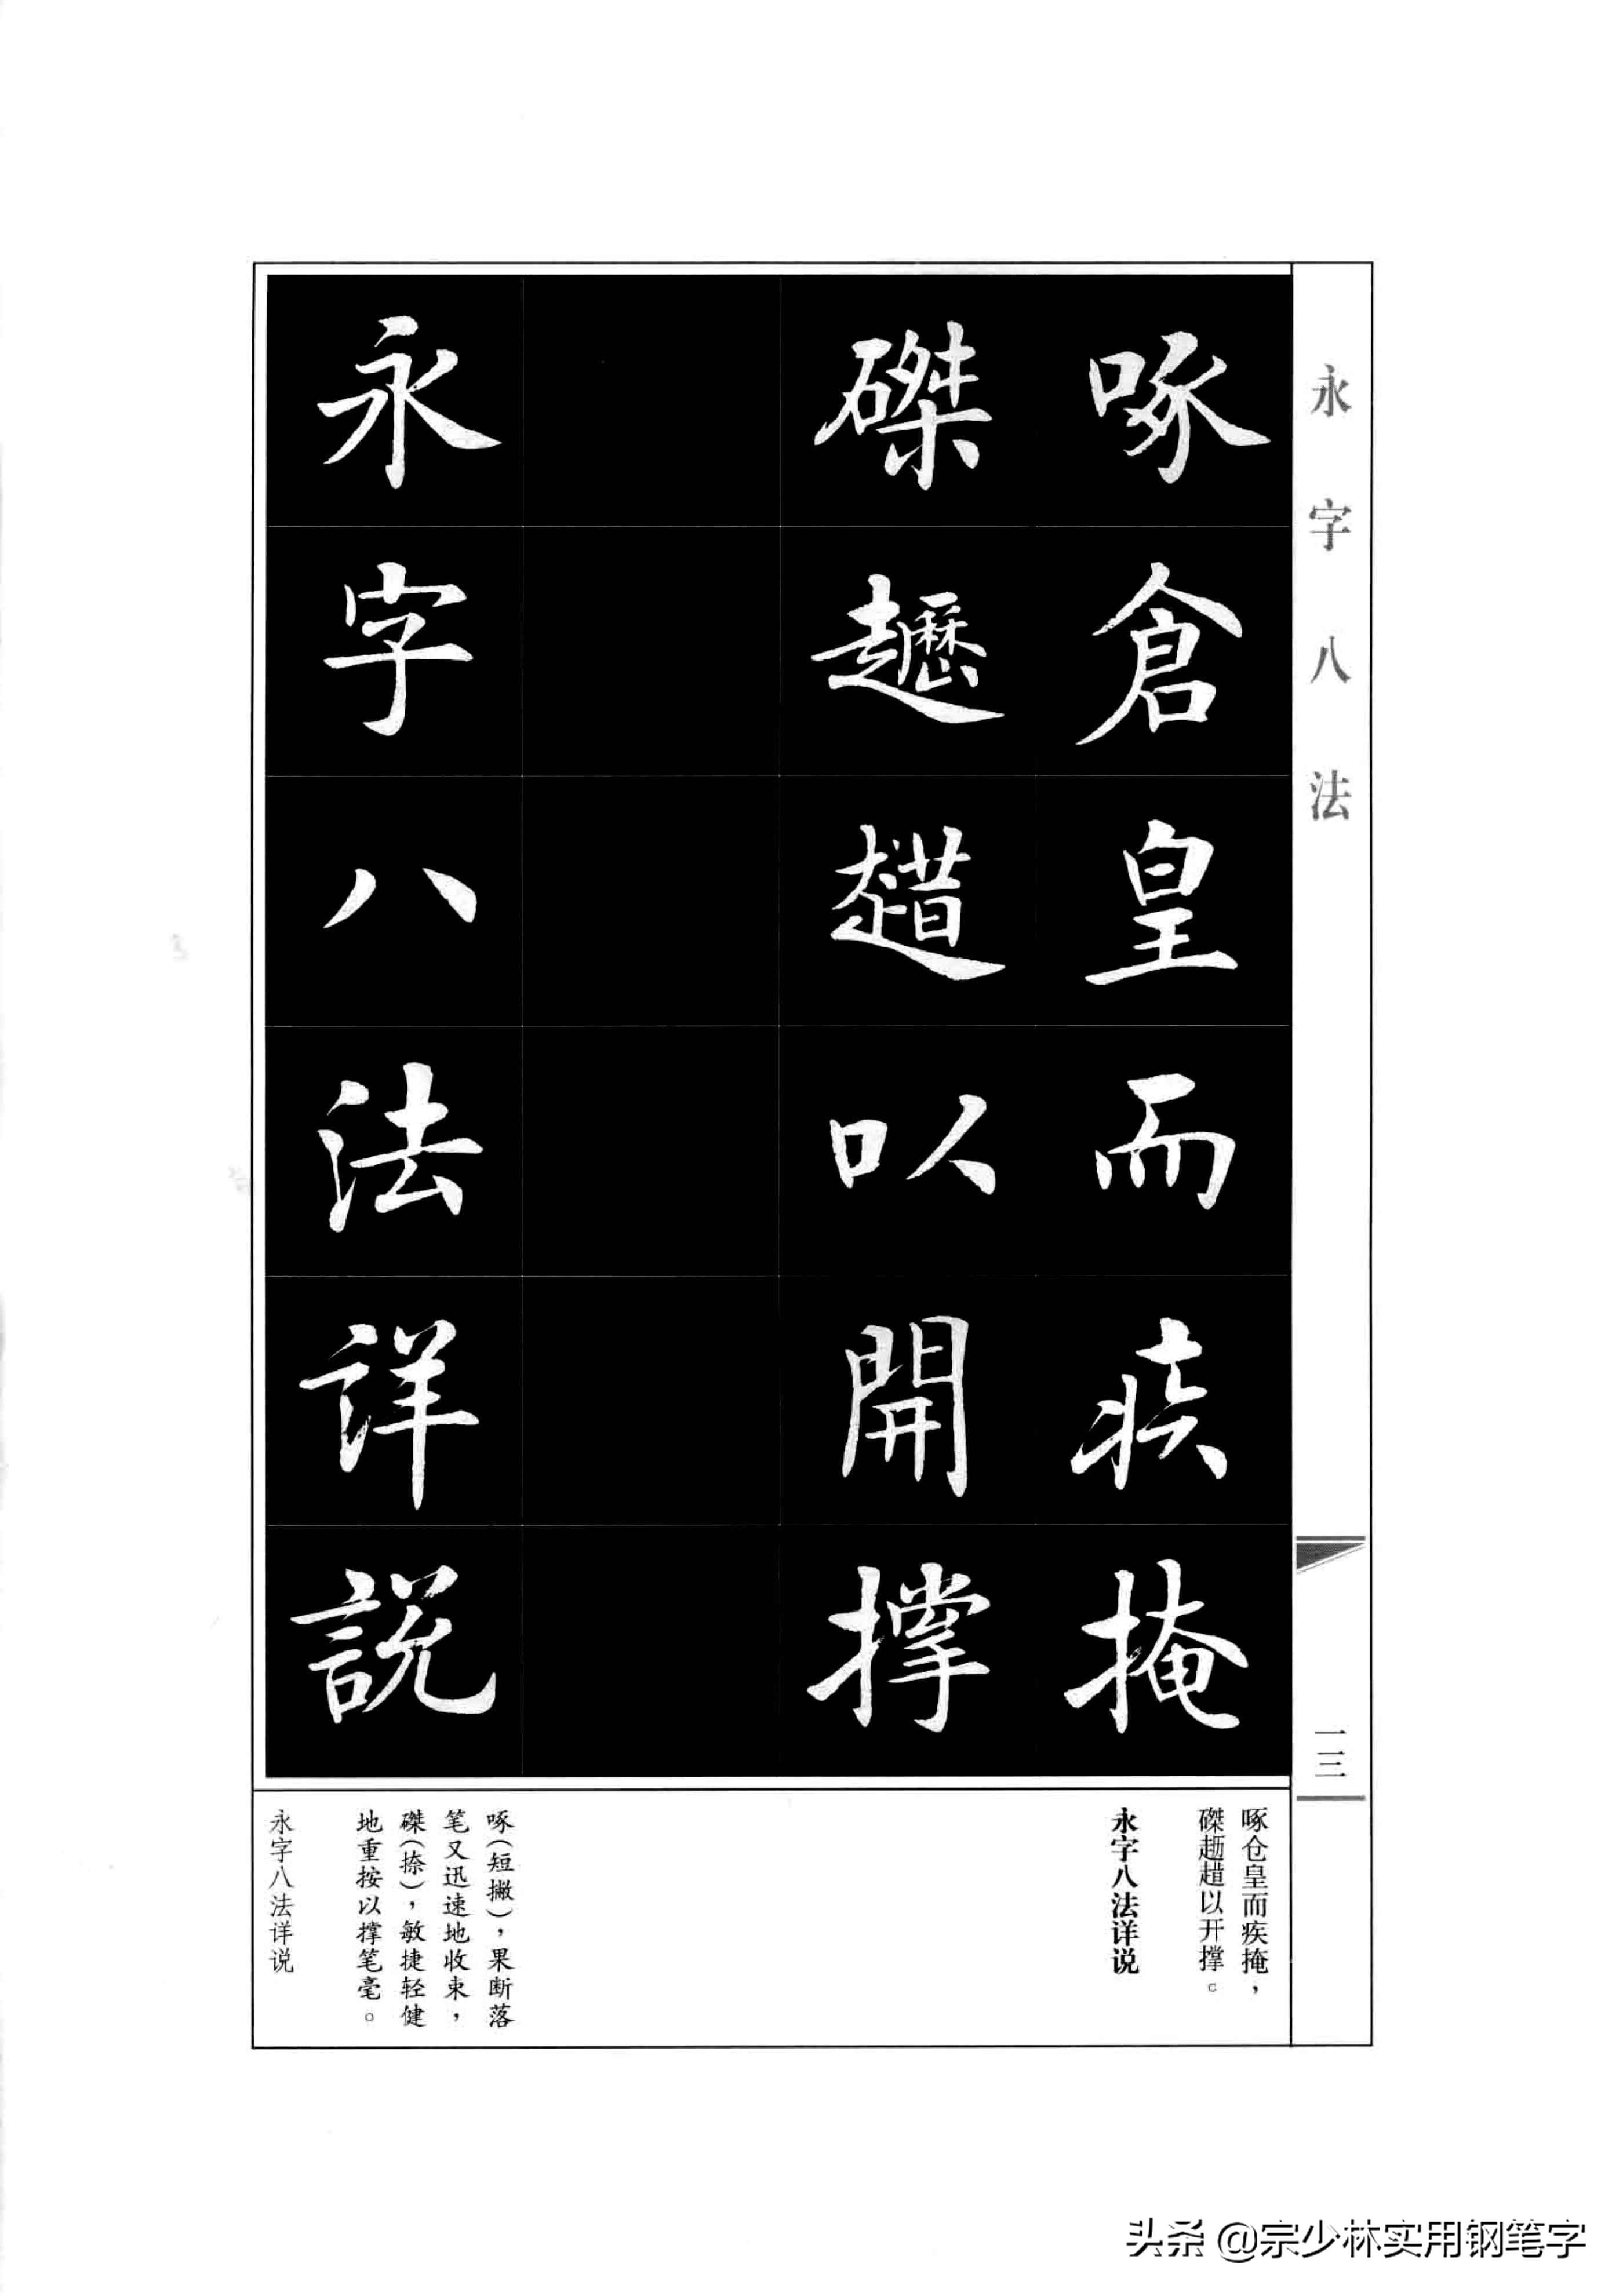 永字八法
一三
啄倉皇而疾掩
磔趯趞以開撑
永字八法詳説
啄仓皇而疾掩，
磔趞以开撑。
永字八法详说
啄（短撇），果断落
笔又迅速地收束，
磔（捺），敏捷轻健
地重按以撑笔毫。
永字八法详说
头条 @宗少林实用钢笔字